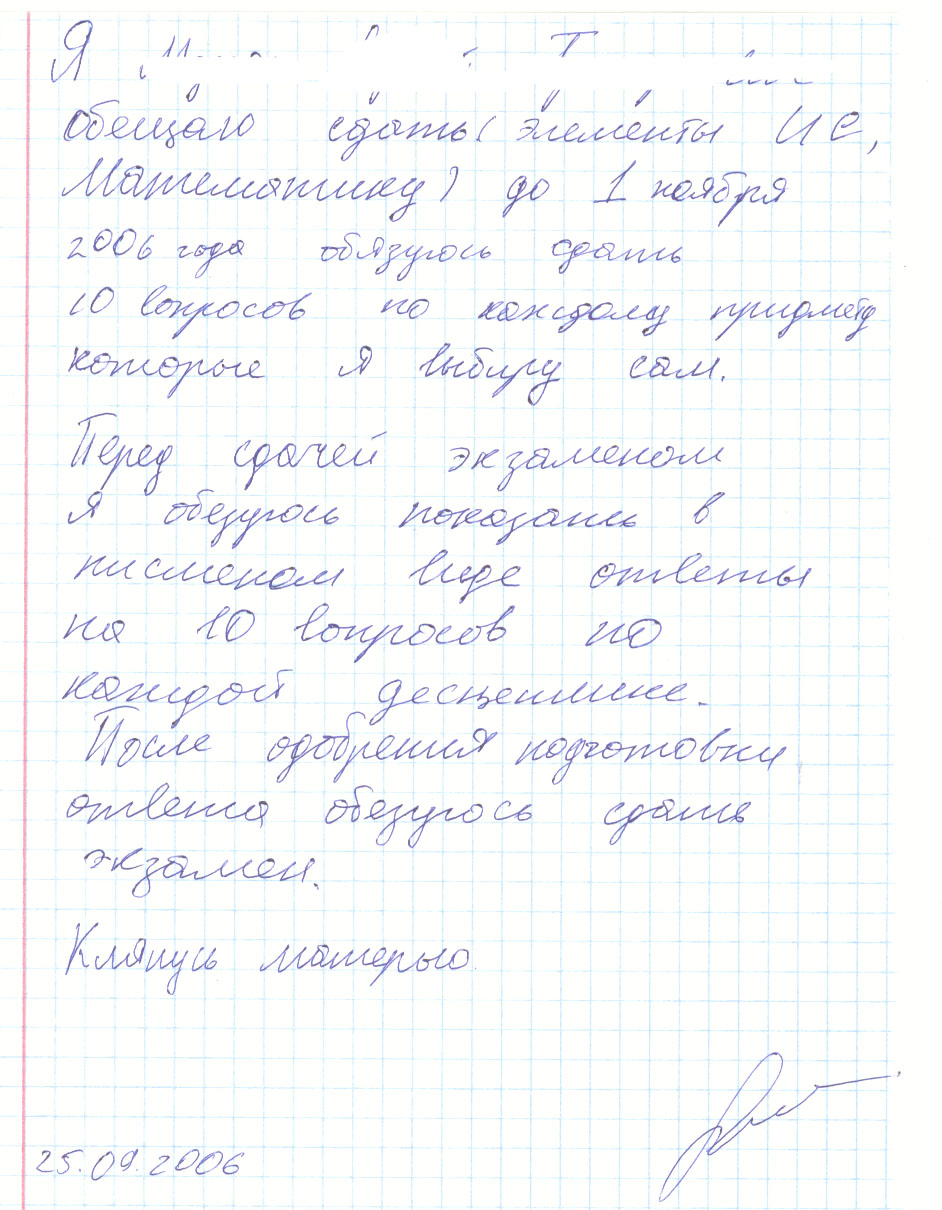 Я
обещаю сдать (элементы ИС,
Математику) до 1 ноября
2006 года обязуюсь сдать
10 вопросов по каждому придмету
которые я выбиру сам.
Перед сдачей экзаменом
я обезуюсь показать в
писменом виде ответы
на 10 вопросов по
каждой десцеплине.
После одобрения подготовки
ответа обезуюсь сдать
экзамен.
Клянусь матерью
25.09.2006